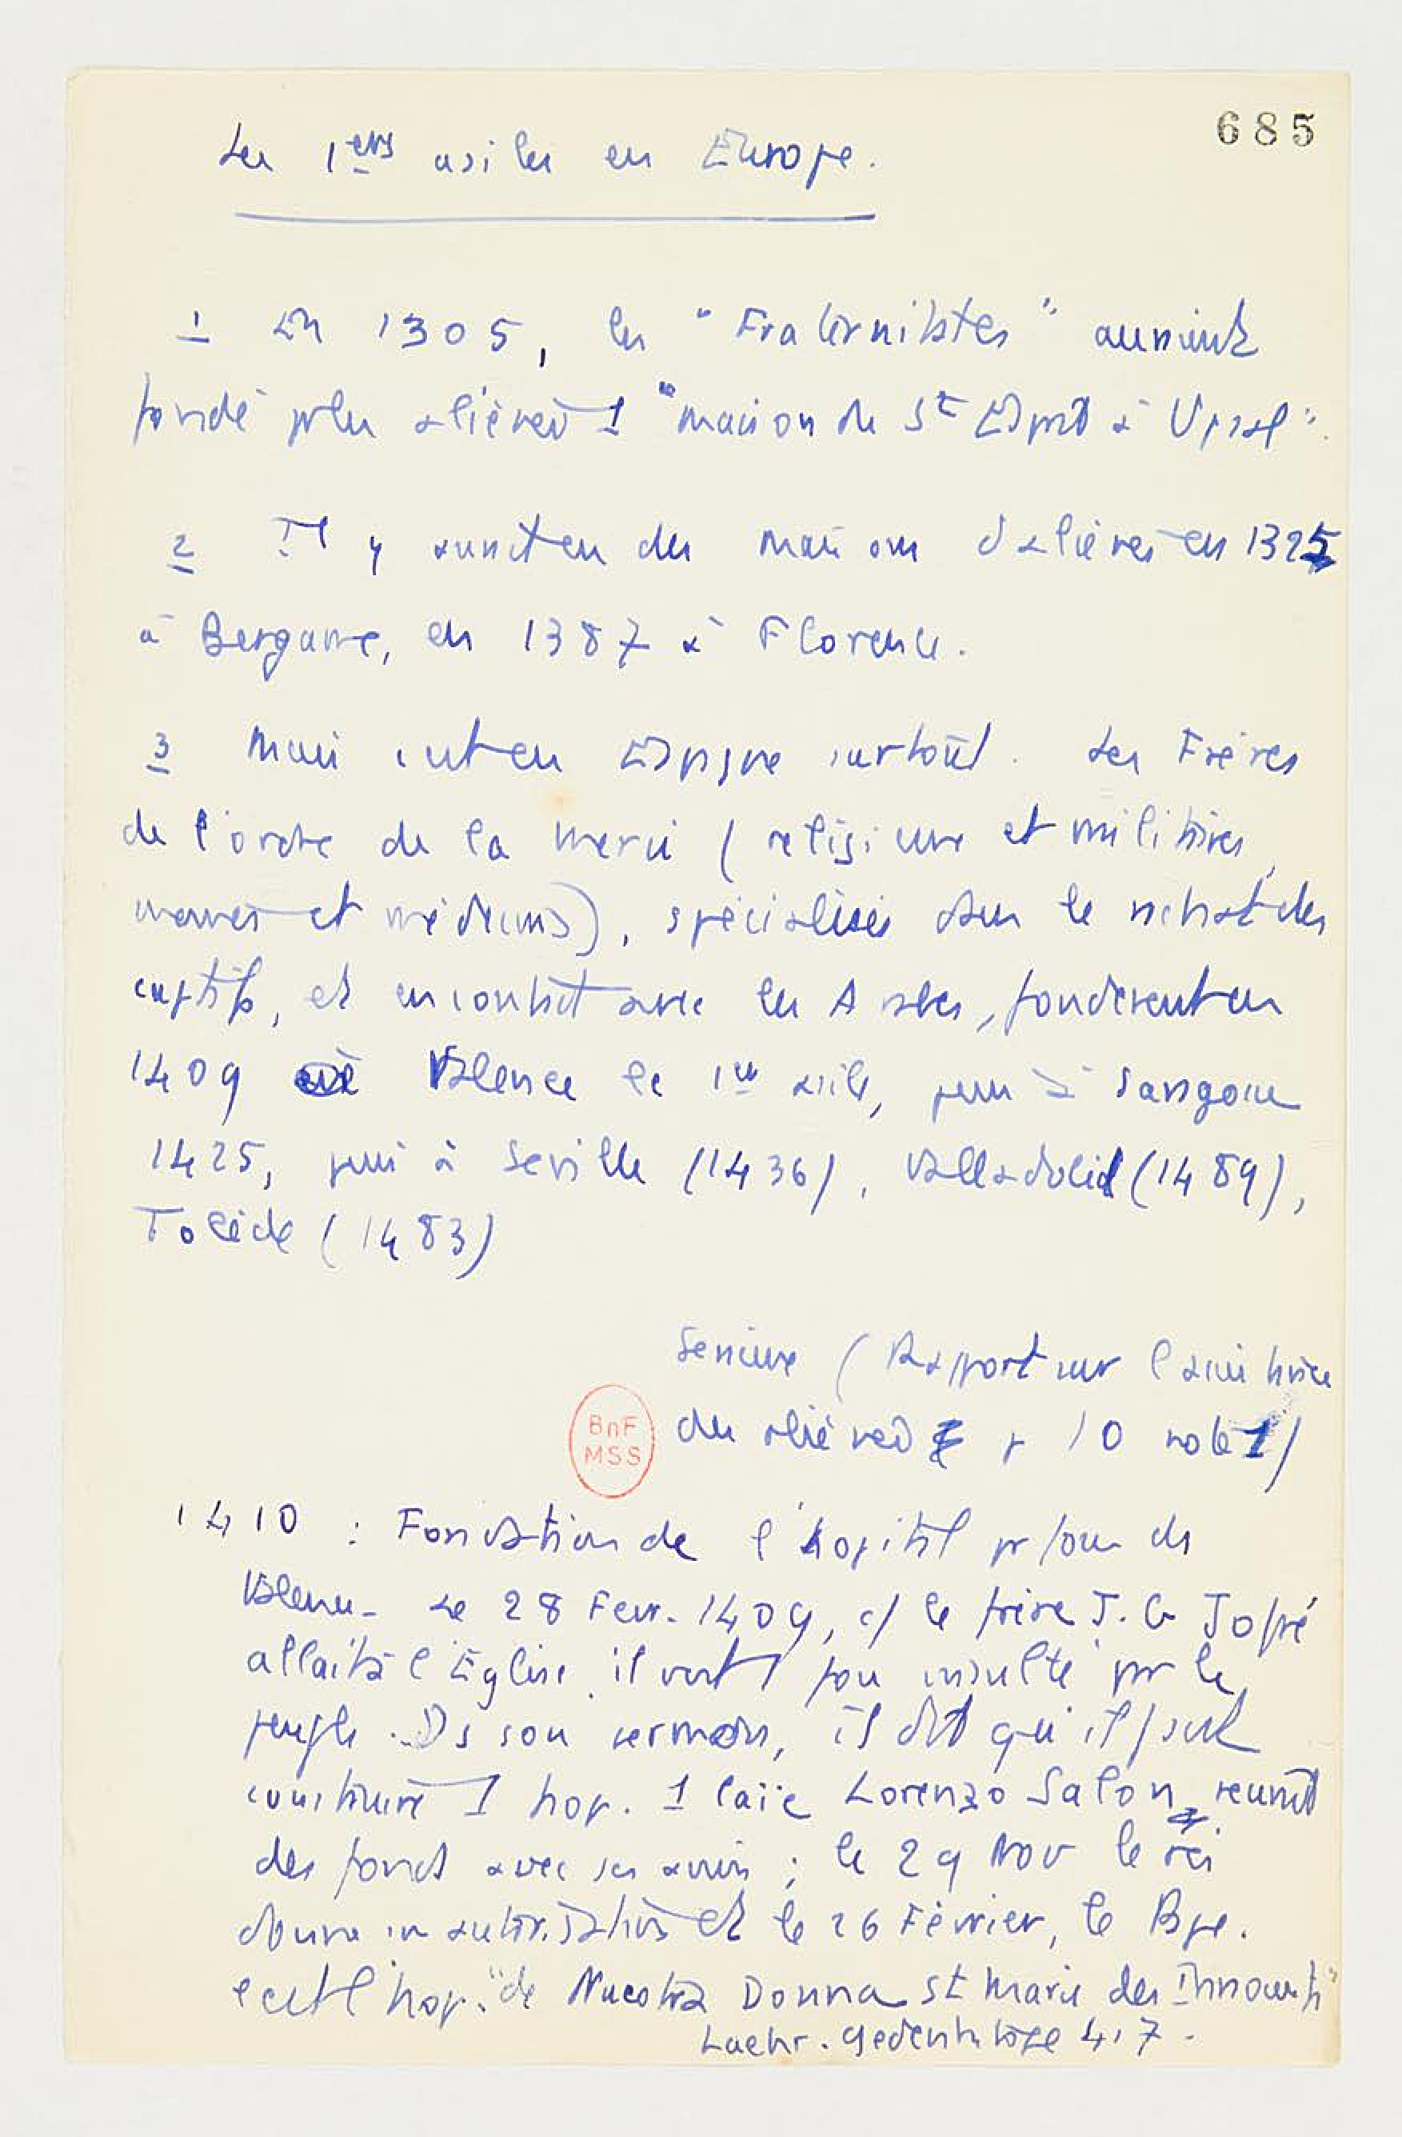 685
Les 1ers asiles en Europe.
1 En 1305, les "Fraternistes" auraient
fondé pr les aliénés 1 "maison du St Esprit à Upsal".
2 Il y aurait eu des maisons d'aliénés en 1325
à Bergame, en 1387 à Florence.
3 Mais c'est en Espagne surtout. Les Frères
de l'ordre de la Merci (religieux et militaires,
moines et médecins), spécialisés dans le rachat des
captifs, et en contact avec les Arabes, fondèrent en
1409 à Valence le 1er asile, puis à Saragosse
1425, puis à Séville (1436), Valladolid (1489),
Tolède (1483)
Sérieux (Rapport sur l'assistance
des aliénés p 10 note 1)
BnF
MSS
1410 : Fondation de l'hopital pr fous de
Valence. Le 28 Fevr. 1409, c/ le frère J. G Jofré
allait à l'Eglise, il voit 1 fou insulté par le
peuple. Ds son sermon, il dit qu'il faut
construire 1 hop. 1 laïc Lorenzo Salon réunit
des fonds avec ses amis ; le 29 Nov le roi
donne son autorisation et le 26 Février, le Pape.
c'est l'hop. "de Nuestra Donna St Maria des Innocents"
Laehr. Gedenktage 417.